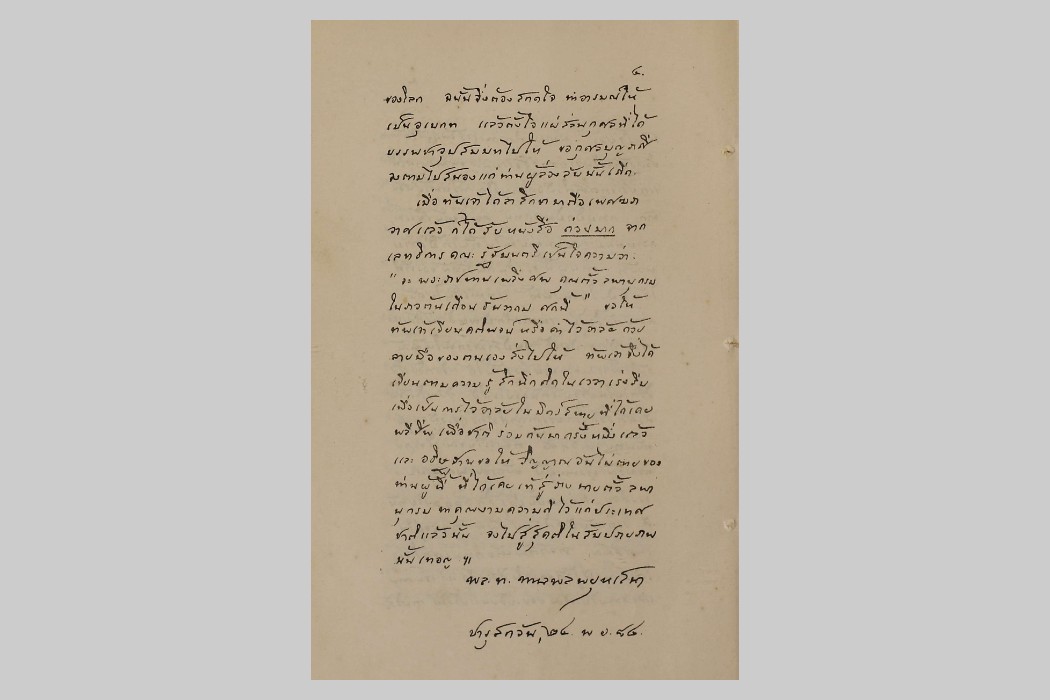 ๔.
ของโลก ฉนั้นจึ่งต้องสกดใจ ทำอารมณ์ให้
เป็นอุเบกขา แล้วตั้งใจแผ่ส่วนกุศลที่ได้
บรรพชาอุปสมบทไปให้ ขอกุศลบุญราศี
มตามไปสนองแก่ท่านผู้ล่วงลับนั้นเถิด.
เมื่อข้าพเจ้าได้ลาสิกขามาถือเพศฆรา
วาศแล้ว ก็ได้รับหนังสือ ด่วนมาก จาก
เลขาธิการคณะรัฐมนตรี เป็นใจความว่า.
"จะพระราชทานเพลิงศพ คุณตั้ว ลพานุกรม
ในราวต้นเดือนธันวาคม ศกนี้" ขอให้
ข้าพเจ้าเขียนคติพจน์หรือคำไว้อาลัยด้วย
ลายมือของตนเองส่งไปให้ ข้าพเจ้าจึ่งได้
เขียนตามความรู้สึกนึกคิดในเวลาเร่งรีบ
เพื่อเป็นการไว้อาลัยในมิตร์สหายที่ได้เคย
พลีชีพเพื่อชาติร่วมกันมาครั้งหนึ่งแล้ว
และอธิษฐานขอให้วิญญาณอันไม่ตายของ
ท่านผู้นี้ ที่ได้เคยเข้าสู่ร่างนายตั้ว ลพา
นุกรม ทำคุณงามความดีไว้แก่ประเทศ
ชาติแล้วนั้น จงไปสู่สุคติในสัมปรายภพ
นั้นเทอญ ฯ
พล.ท. พหลพลพยุหเสนา
วังปารุสกวัน, ๒๔. พ.ย. ๘๔.